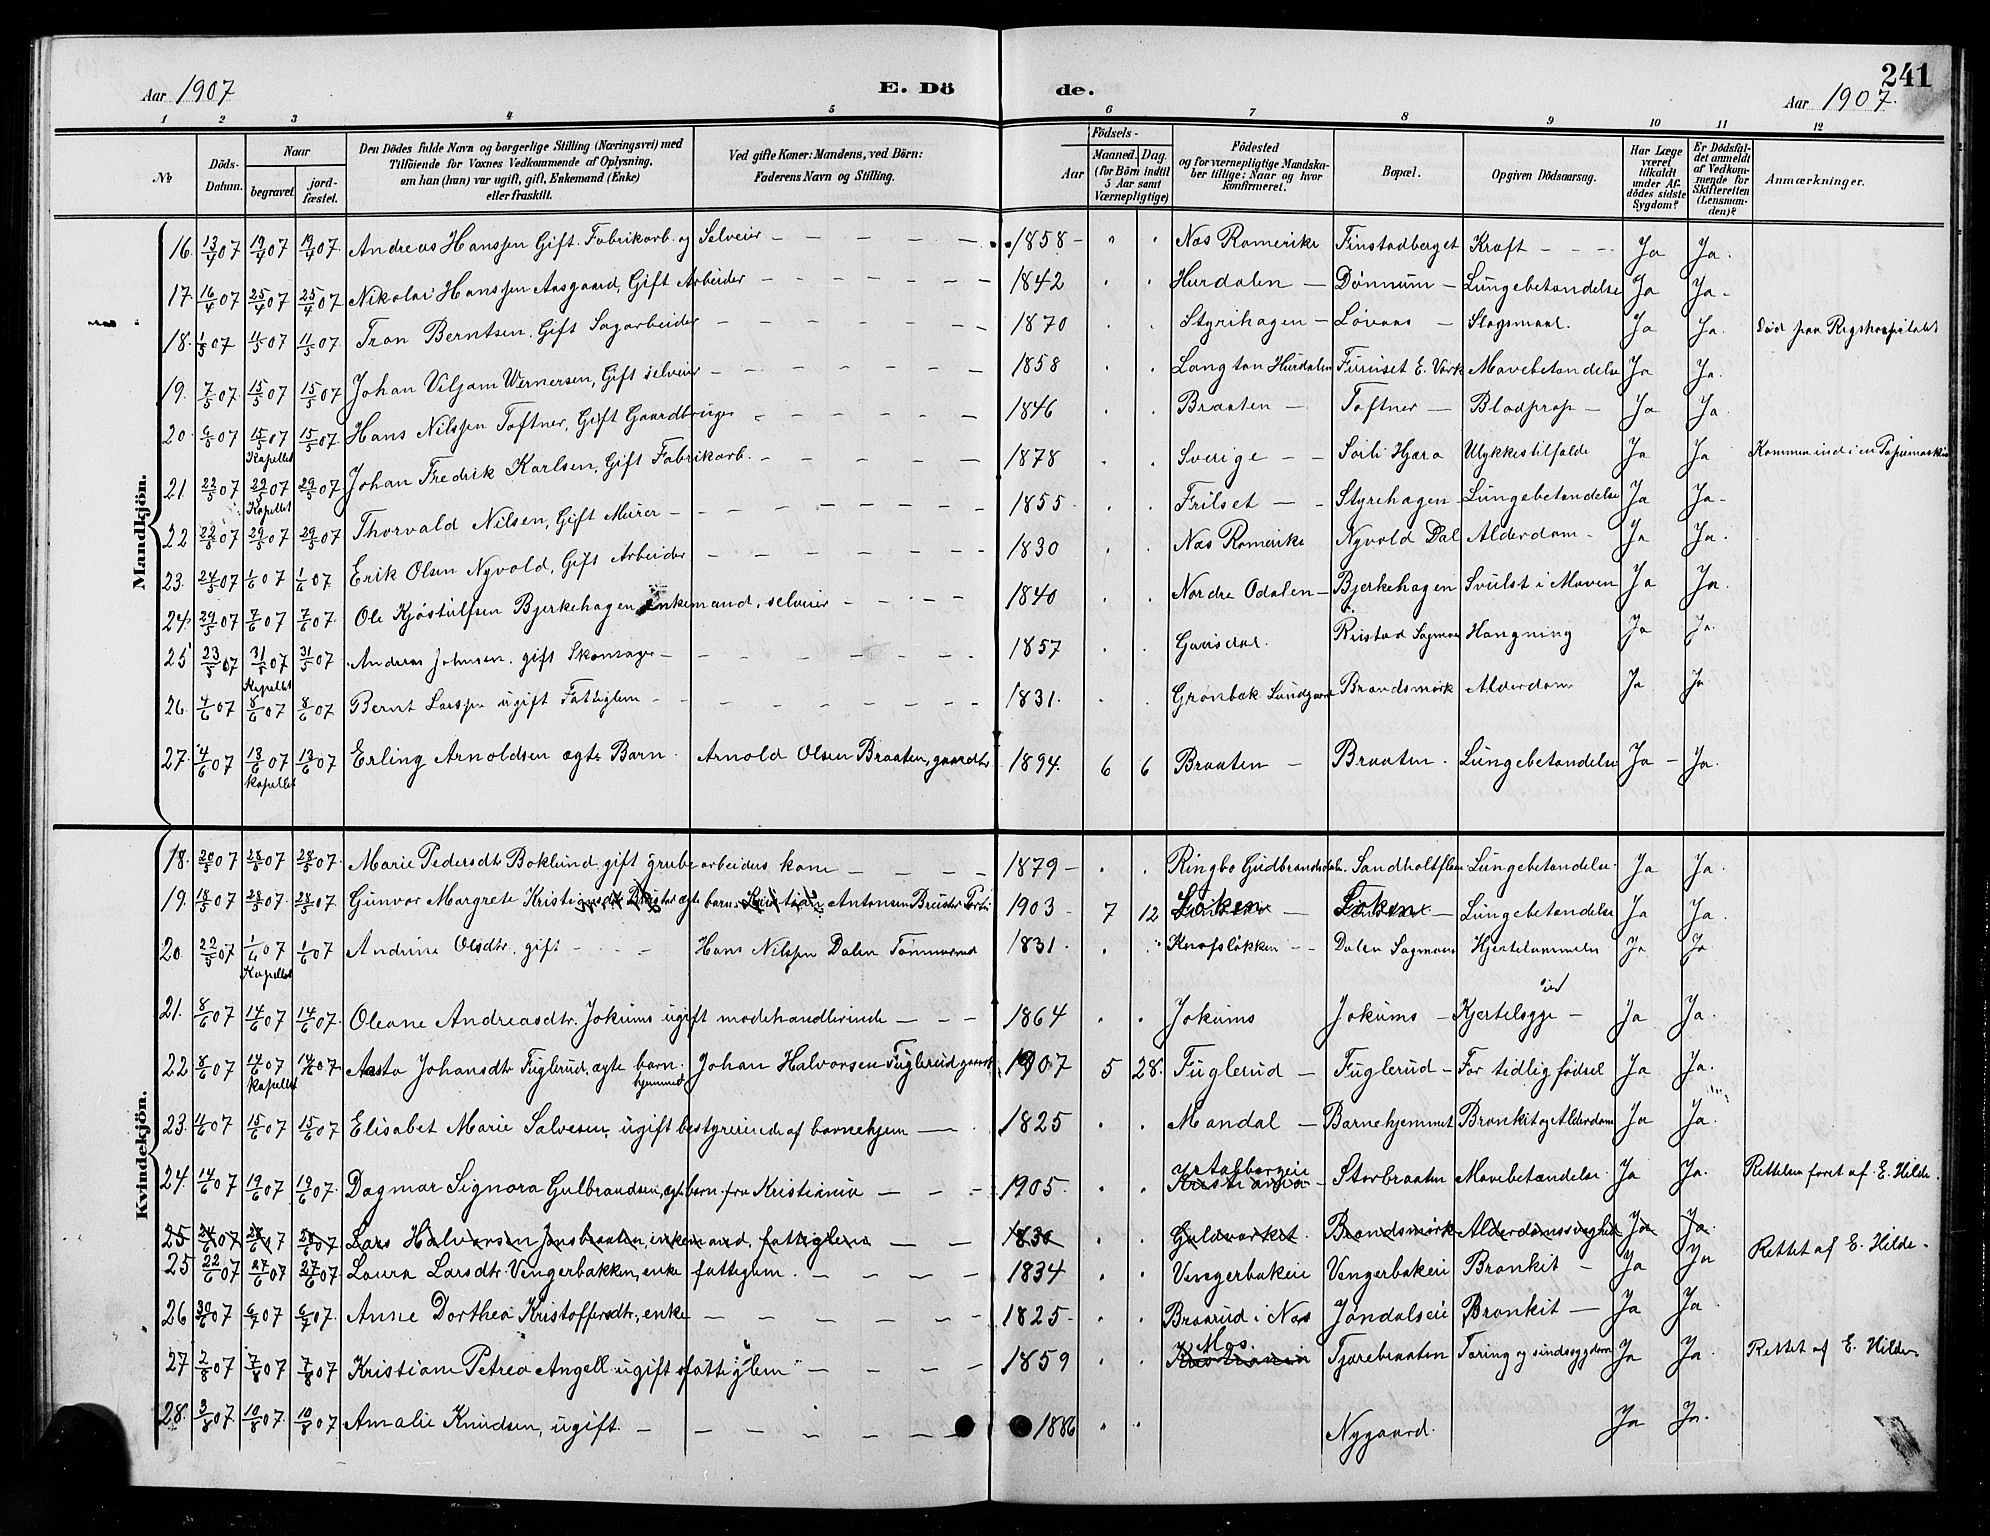 241
Aar 1907
E. Dö de.
Aar 1907.
1 2 3 4 5 6 7 8 9 10 11 12
№
Döds-Datum.
Naar
begravet.
jord-fæstet.
Den Dödes fulde Navn og borgerlige Stilling (Næringsvei) med
Tilföiende for Voxnes Vedkommende af Oplysning,
om han (hun) var ugift, gift, Enkemand (Enke)
eller fraskilt.
Ved gifte Koner: Mandens, ved Börn:
Faderens Navn og Stilling.
Födsels-
Aar
Maaned. Dag.
(for Börn indtil
5 Aar samt
Værnepligtige)
Födested
og for værnepligtige Mandska-
ber tillige: Naar og hvor
konfirmeret.
Bopæl.
Opgiven Dödsaarsag.
Har Læge
været
tilkaldt
under Af-
dödes sidste
Sygdom?
Er Dödsfal-
det anmeldt
af Vedkom-
mende for
Skifteretten
(Lensman-
den)?
Anmærkninger.
Mandkjön.
16. 13/4 07 19/4 07 19/4 07. Andreas Hanssen Gift. Fabrikarb. og Selveier 1858 Nas Romerike Finstadberget Kraft Ja Ja.
17. 16/4 07 25/4 07 25/4 07 Nikolai Hanssen Aasgaard, Gift Arbeider 1842 Hurdalen Dønnum Lungebetandelse Ja Ja
18. 1/5 07 11/5 07 11/5 07. Tron Berntsen, Gift Sagarbeider 1870 Styrihagen Løvaas Slagsmaal. Ja Ja. Död paa Rigshospitalet
19. 7/5 07. 15/5 07 15/5 07 Johan Viljam Wernersen, Gift selveier 1858 Langton Hurdalen Furuset E. Værk Mavebetandelse Ja Ja.
20. 07 15/5 07 Kapellet 15/5 07 Hans Nilssen Toftner, Gift Gaardbruger 1846 Braaten Toftner Blodprop Ja Ja.
21. 22/5 07 29/5 07 Kapellet 29/5 07 Johan Fredrik Karlsen, Gift Fabrikarb. 1878 Sverige Soili Hjera Ulykkestilfalde Ja Ja Kommen ind i en Papirmaskin
22 22/5 07 29/5 07 29/5 07 Thorvald Nilsen, Gift Murer 1855 Frilset Styrehagen Lungebetandelse Ja Ja
23. 24/5 07 1/6 07 1/6 07 Erik Olsen Nyvold, Gift Arbeider 1830 Nas Romerike Nyvold Dal Alderdom Ja Ja.
24. 29/5 07 7/6 07 7/6 07. Ole Kjøstulfsen Bjerkehagen Enkemand, selveier 1840 Nordre Odalen Bjerkehagen Svulst i Maven Ja Ja.
25 23/5 07 31/5 07 Kapellet 31/5 07 Andreas Johnsen, gift Skomager 1857 Gausdal. Ruistad Sagmoen Hangning Ja Ja.
26. 4/6 07 8/6 07 8/6 07 Bernt Larssen ugift Fattiglem 1831. Grønbæk Lundgaard Brandsmørk Alderdom Ja Ja
27. 4/6 07 13/6 07 Kapellet 13/6 07 Erling Arnoldsen ægte Barn. Arnold Olsen Braaten, gaardbr 1894. 6 6 Braaten Braaten. Lungebetandelse Ja Ja.
Kvindekjön.
18. 20/5 07 28/5 07 28/5 07. Marie Pedersdtr Boklund gift grubearbeiders kone 1879 Ringbo Gudbrandsdalen Sandholtflaen Lungebetandelse. Ja Ja.
19. 18/5 07 28/5 07. 28/5 07. Gunvor Margrete Kristiansdtr ægte barn. Antonsen 1903 7 12 Løken Løken Lungebetandelse Ja Ja.
20. 22/5 07 1/6 07 Kapellet 1/6 07 Andrine Olsdtr. gift Hans Nilssen Dalen Tømmermand 1831. Knofsløkken Dalen Sagmoen Hjertelammelse Ja Ja
21. 8/6 07 14/6 07 14/6 07. Oleane Andreasdtr. Jokums ugift modehandlerinde 1864 Jokums Jokums Kjertelsyge Ja Ja.
22 8/6 07 14/6 07 Kapellet 14/6 07 Aasta Johansdtr Fuglerud, ægte barn. hjemmed. Johan Halvorsen Fuglerud gaardb 1907 5 28. Fuglerud Fuglerud For tidlig fødsel Ja Ja.
23. 07 15/6 07 15/6 07 Elisabet Marie Salvesen, ugift bestyrerinde af barnehjem 1825 Mandal Barnehjemmet Bronkit og Alderdom Ja Ja.
24. 14/6 07 19/6 07 19/6 07. Dagmar Signora Gulbrandsen, ægte barn fra Kristiania 1905. Kristiania Storbraaten Mavebetændelse Ja Ja. Rettelsen foret af E. Hilde.
25 24/6 07 07 07 Lars Halvorsen Jonsbraaten, enkemand, fattiglem 1830 Guldværket. Brandsmørk Alderdomssvaghed Ja Ja.
25 22/6 07 27/6 07 27/6 07 Laura Larsdtr. Vengerbakken, enke fattiglem. 1834 Vengerbakeie Vengerbakeie Bronkit Ja Ja Rettet af E. Hilde.
26 30/6 07 6/7 07 6/7 07. Anne Dorthea Kristoffersdtr, enke 1825 Braarud i Nas Jøndalseie Bronkit Ja Ja.
27 2/8 07 7/8 07 7/8 07. Kristiane Petrea Angell ugift fattiglem 1859 Mos. Kristiania Tjærebraaten Tæring og sindssygdom Ja Ja. Rettet af E. Hilde
28. 3/8 07 10/8 07. 10/8 07. Amalie Knudsen, ugift. 1886 Nygaard. Ja Ja.